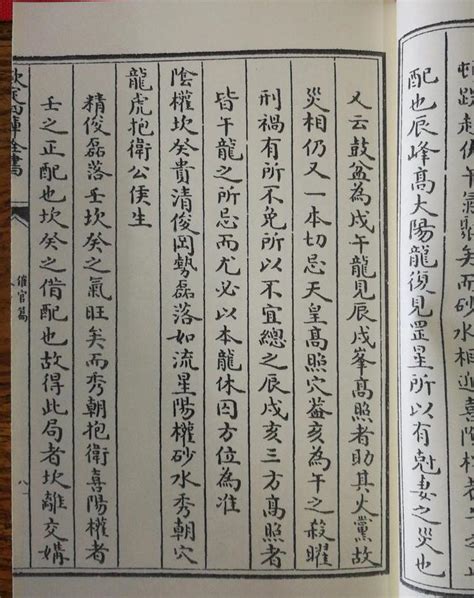 矣而砂水相迎喜陽
配也辰峰高大陽龍復見罡星所以有尅妻之災也
又云鼓盆為戊午龍見辰戌峯高照者助其火黨故
災相仍又一本切忌天皇高照穴蓋亥為午之殺曜
刑禍有所不免所以不宜總之辰戌亥三方高照者
皆午龍之所忌而尤必以本龍休囚方位為准
陰權坎癸貴清俊岡勢磊落如流星陽權砂水秀朝穴
龍虎抱衛公侯生
精俊磊落壬坎癸之氣旺矣而秀朝抱衛喜陽權者
壬之正配也坎癸之借配也故得此局者坎離交媾
欽定四庫全書
催官篇